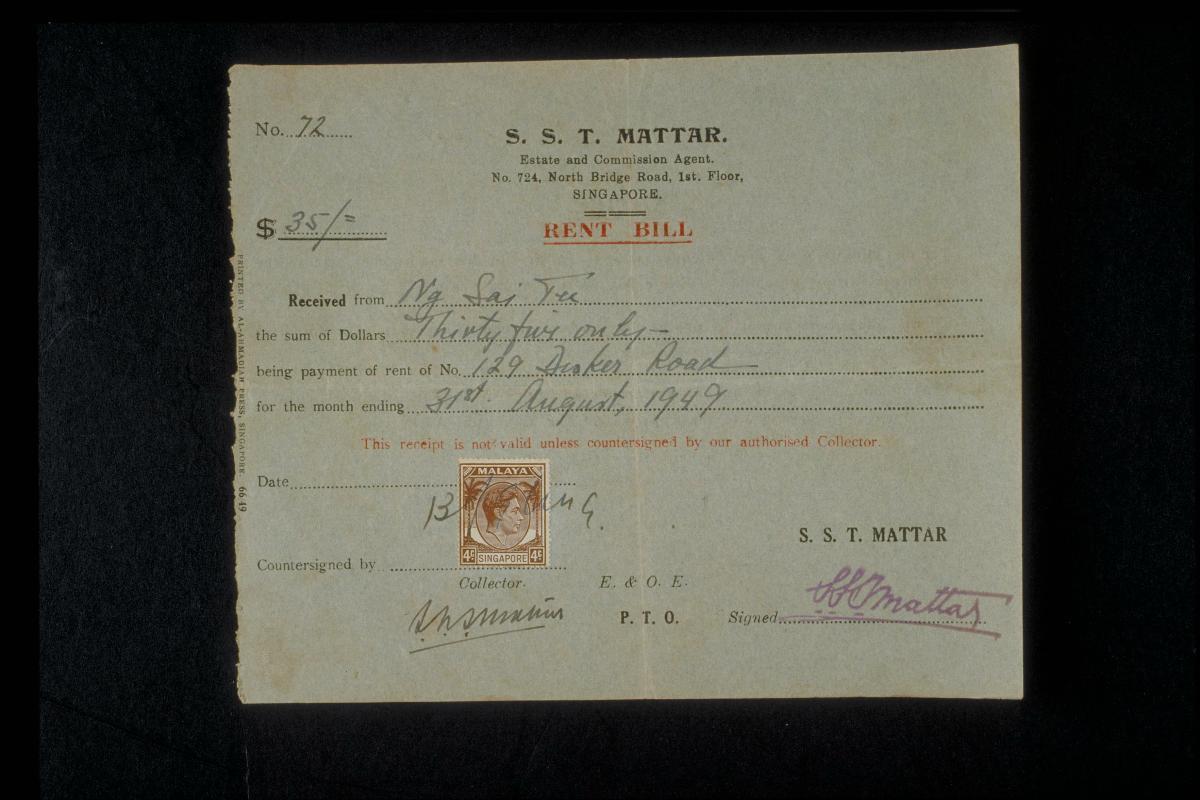 No. 72
S. S. T. MATTAR.
Estate and Commission Agent.
No. 724, North Bridge Road, 1st. Floor,
SINGAPORE.
$ 35/=
RENT BILL
Received from Ng Sai Tee
the sum of Dollars Thirty five only—
being payment of rent of No. 129 Desker Road
for the month ending 31st August, 1949
This receipt is not valid unless countersigned by our authorised Collector.
Date
MALAYA
4c SINGAPORE 4c
S. S. T. MATTAR
Countersigned by
Collector.
E. & O. E.
P. T. O.
Signed SSTMattar
PRINTED BY AL-AHMADIAH PRESS, SINGAPORE. 66-49